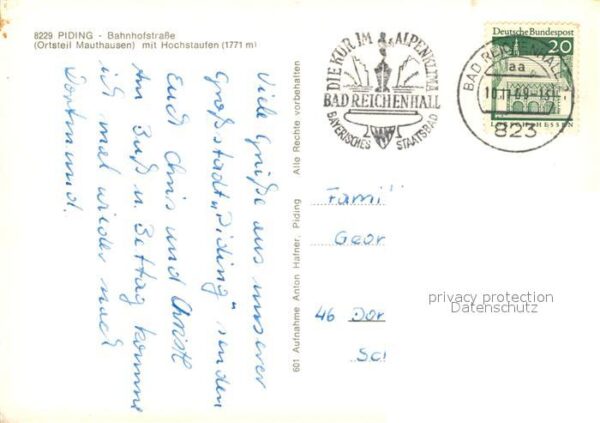 8229 PIDING - Bahnhofstraße
(Ortsteil Mauthausen) mit Hochstaufen (1771 m)
Viele Grüße aus unserer
Großstadt „Piding" senden
Euch Chris und Christl
Am Buß u. Bettag komme
ich mal wieder nach
Dortmund.
601 Aufnahme Anton Hafner, Piding Alle Rechte vorbehalten
DIE KUR IM ALPENKLIMA
BAD REICHENHALL
BAYERISCHES STAATSBAD
Deutsche Bundespost
20
LORSCH/HESSEN
BAD REICHENHALL
aa
10.11.69-18
823
Famil
Geor
46 Dor
Sc
privacy protection
Datenschutz